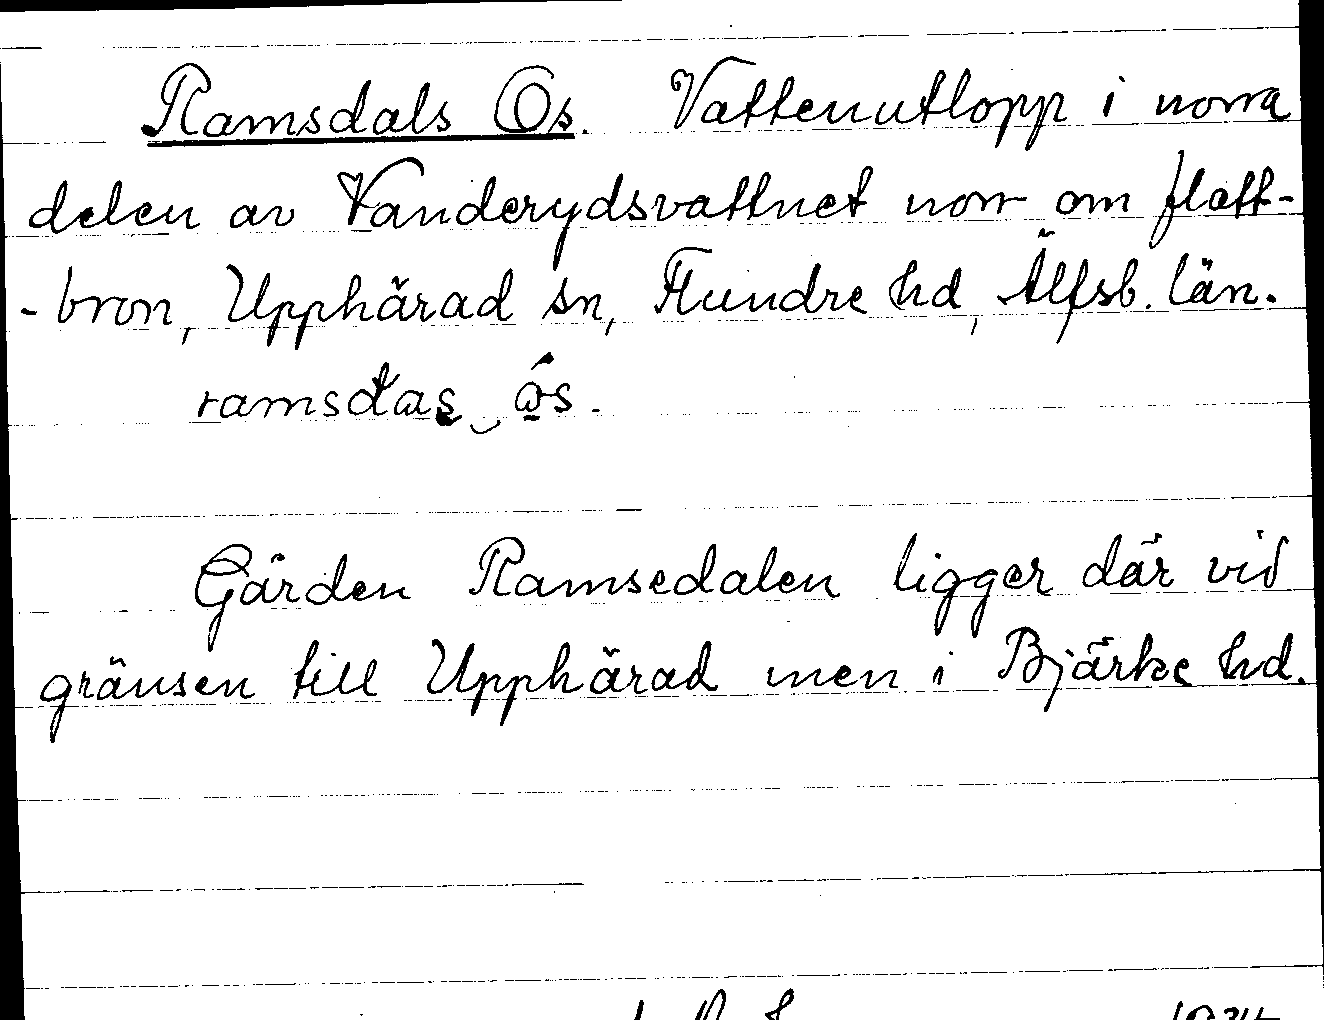 Ramsdals Os. Vattenutlopp i norra
delen av Vanderydsvattnet norr om flatt-
-bron, Upphärad sn, Flundre hd, Älfsb. län.
ramsdas os.
Gården Ramsedalen ligger där vid
gränsen till Upphärad men i Bjärke hd.